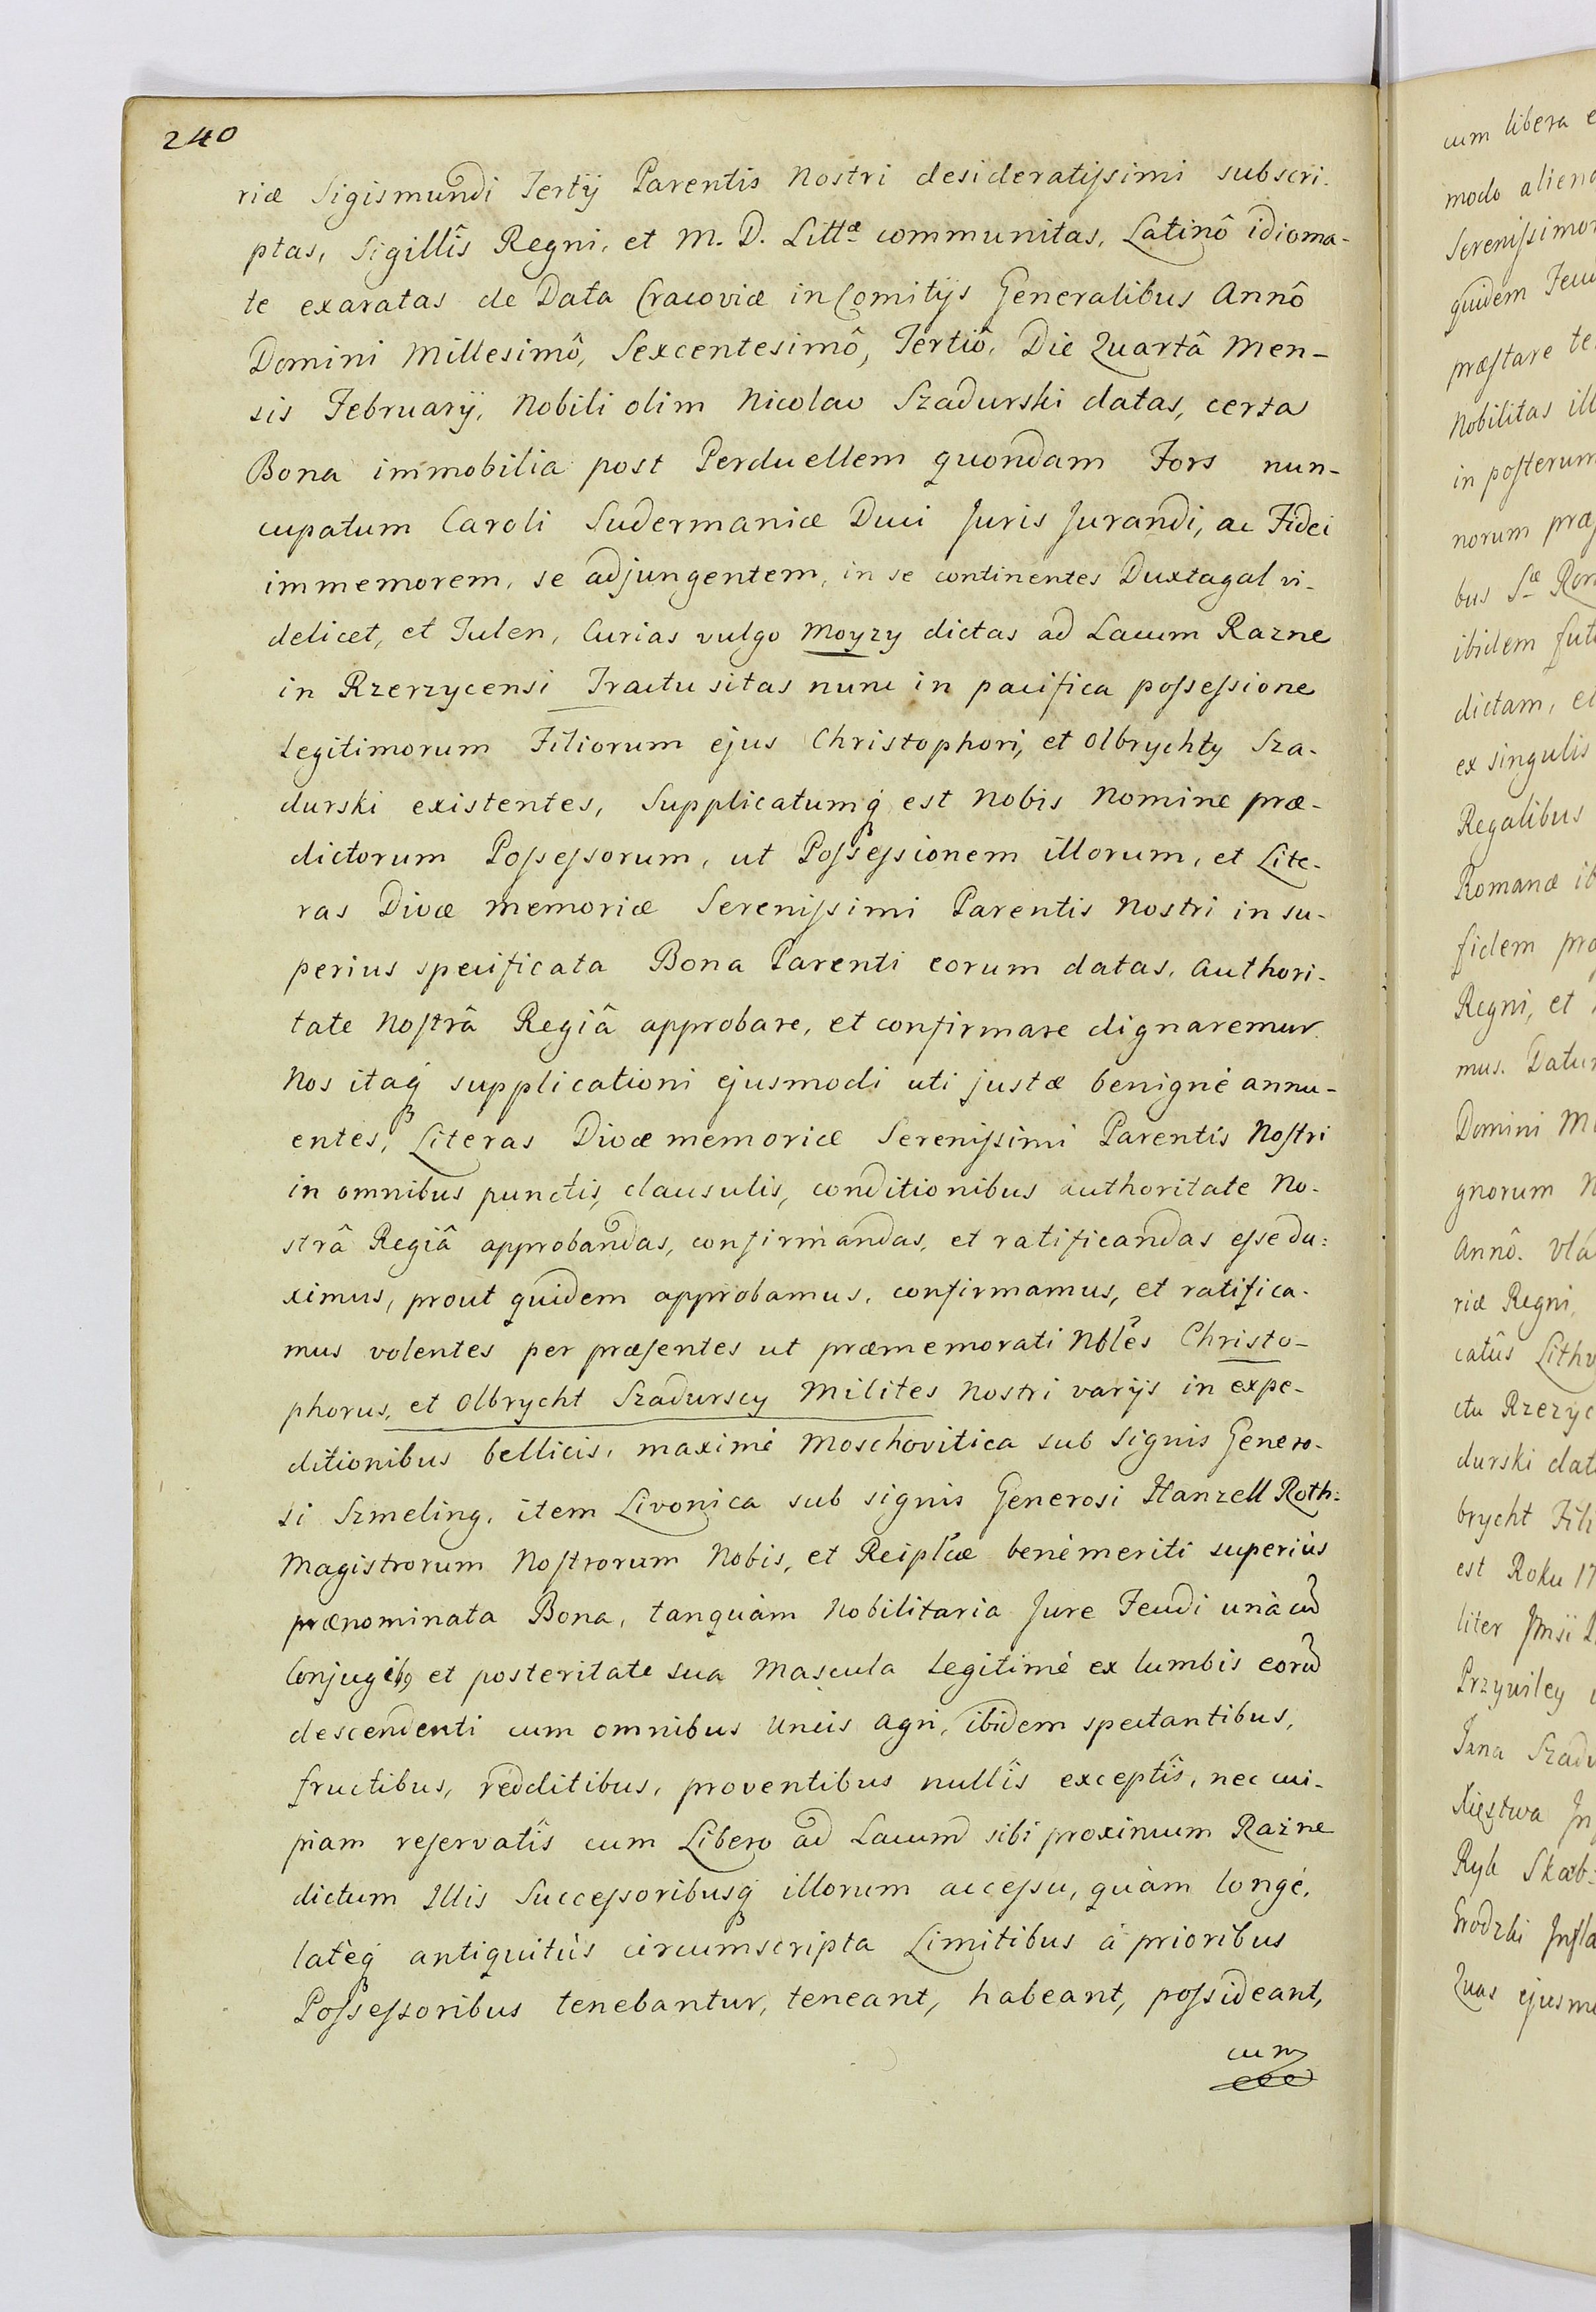 240
riæ Sigismundi Tertij Parentis Nostri desideratissimi subscri-
ptas, Sigillîs Regni, et M. D. Littæ communitas, Latinô idioma-
te exaratas de Data Cracoviæ in Comitijs Generalibus Annô
Domini Millesimô, Sexcentesimô, Tertiô, Die Quartâ Men-
sis Februarij, Nobili olim Nicolao Szadurski datas, certa
Bona immobilia post Perduellem quondam Fors nun-
cupatum Caroli Sudermaniæ Duci Juris Jurandi, ac Fidei
immemorem, se adjungentem, in se continentes Duxtagal vi-
delicet, et Julen, Curias vulgo Moyzy dictas ad Lacum Razne
in Rzerzycensi Tractu sitas nunc in pacifica possessione
Legitimorum Filiorum ejus Christophori, et Olbrychty Sza-
durski existentes, Supplicatumq est Nobis Nomine præ-
dictorum Possessorum, ut Possessionem illorum, et Lite-
ras Divæ memoriæ Serenissimi Parentis Nostri in su-
perius specificata Bona Parenti eorum datas, Authori-
tate Nostrâ Regiâ approbare, et confirmare dignaremur.
Nos itaq supplicationi ejusmodi uti justæ benignè annu-
entes, Literas Divæ memoriæ Serenissimi Parentis Nostri
in omnibus punctis, clausulis, conditionibus authoritate No-
strâ Regiâ approbandas, confirmandas, et ratificandas esse du:
ximus, prout quidem approbamus, confirmamus, et ratifica-
mus volentes per præsentes ut præmemorati Nbles Christo-
phorus, et Olbrycht Szadurscy Milites Nostri varijs in expe-
ditionibus bellicis, maximè Moschovitica sub Signis Genero-
si Szmeling, item Livonica sub signis Generosi Hanzell Roth:
Magistrorum Nostrorum Nobis, et Reiplcæ benèmeriti superiùs
prænominata Bona, tanquàm Nobilitaria Jure Feudi unà cum
Conjugibus et posteritate sua Mascula Legitimè ex lumbis eorum
descendenti cum omnibus Uncis Agri, ibidem spectantibus,
fructibus, redditibus, proventibus nullîs exceptîs, nec cui-
piam reservatîs cum Libero ad Lacum sibi proximum Razne
dictum Illis Successoribusq illorum accessu, quàm longè,
latèq antiquitùs circumscripta Limitibus à prioribus
Possessoribus tenebantur, teneant, habeant, possideant,
cum
cum libera
modo aliena
Serenissimor
quidem Feud
præstare te
Nobilitas ill
in posterum
norum præ
bus Sæ Rom
ibidem
dictam,
ex singulis
Regalibus
Romanæ
fidem pro
Regni, et
mus. Datu
Domini
gnorum
Annô. Vla
riæ Regni,
catûs Lithu
ctu Rzezyc
durski dat
brycht Fili
est Roku 17
liter
Przywiley
Jana Szadu
Xięztwa
Ryk Skarb:
Grodzki
Quas ejusmo